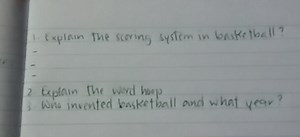 1. Explain The scoring system in basketball?
-
-
-
2 Explain The word hoop
3 Who invented basketball and what year?